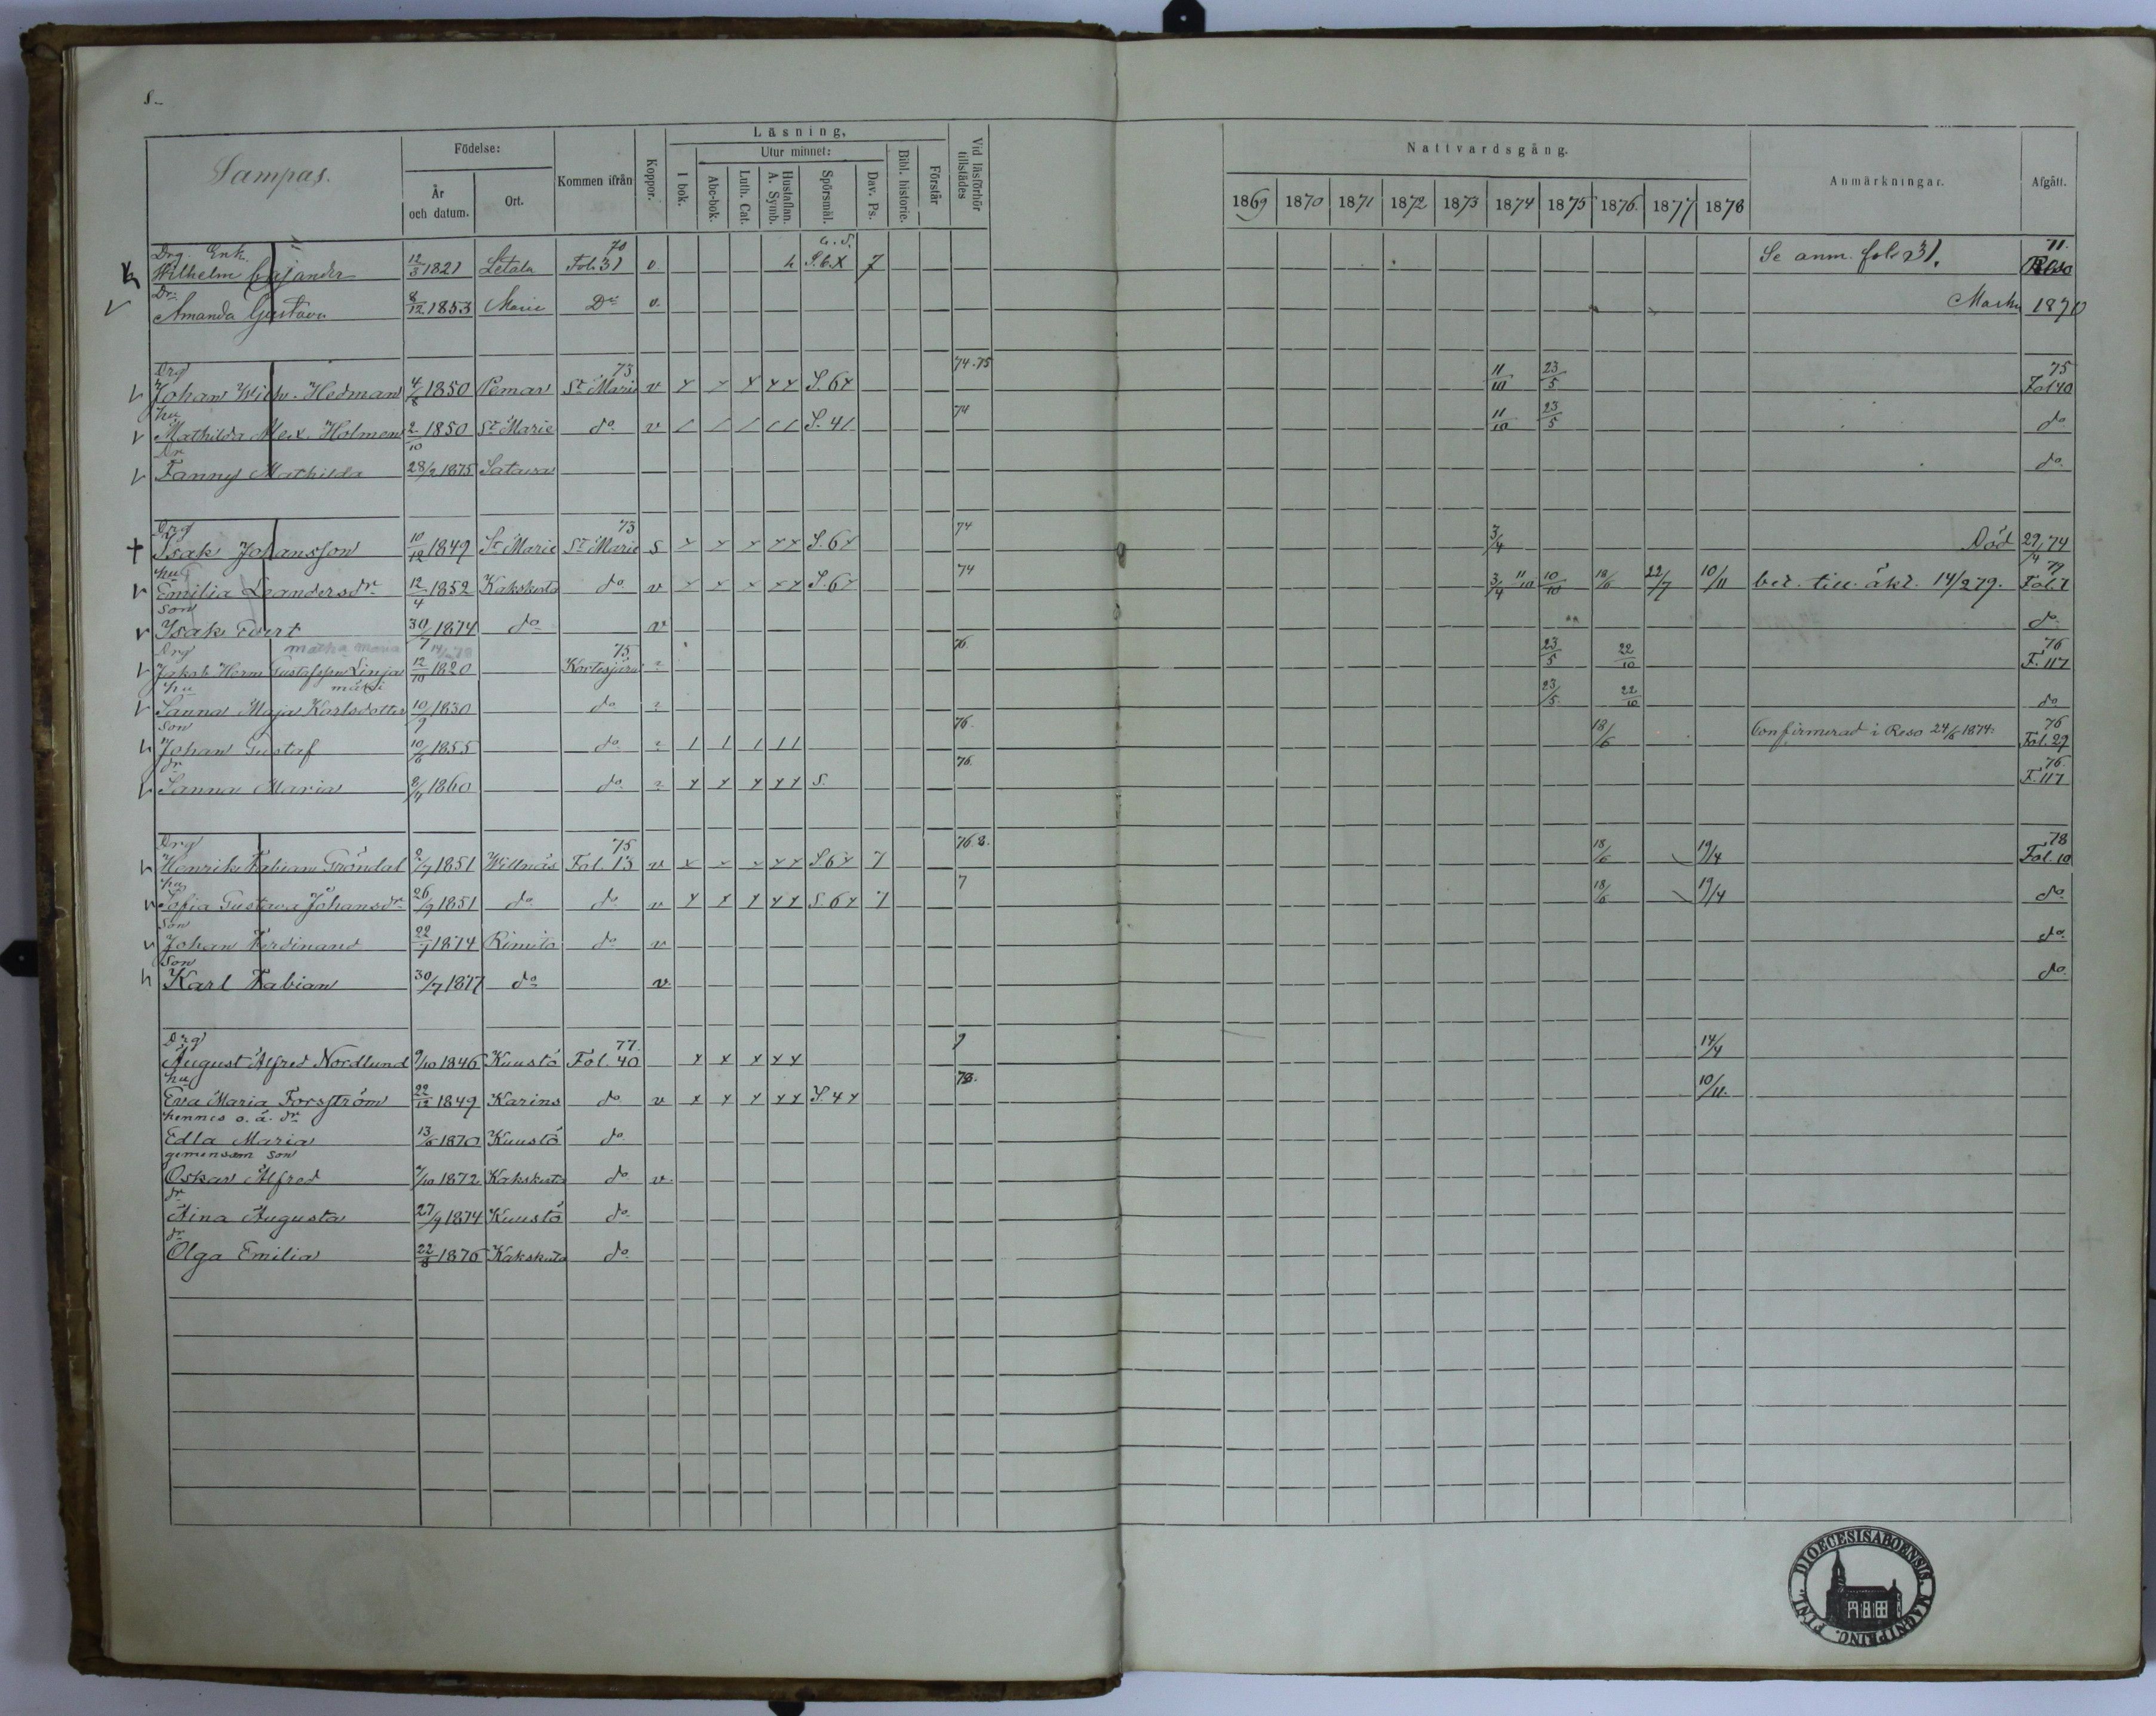 8.
Sampas.
Födelse:
År och datum.
Ort.
Kommen ifrån
Koppor.
Läsning,
I bok.
Utur minnet:
Abc-bok.
Luth. Cat.
Hustaflan. A. Symb.
Spörsmål.
Dav. Ps.
Bibl. historie.
Förstår
Vid läsförhör tillstädes
Nattvardsgång.
1869 1870 1871 1872 1873 1874 1875 1876. 1877 1878
Anmärkningar.
Afgått.
Drg. Enk. 70 a. S. 71.
Wilhelm Cajander 12/3 1821 Letala Fol. 31 v. h S. 6 x 7 Se anm. fol. 31. Reso
Dr.
Amanda Gustava 8/12 1853 Marie Do v. Masku 1870
Drg 73 74.75 75
Johan Wilh. Hedman 4/8 1850 Pemar St Marie v x x x x x S. 6 x 11/10 23/5 Fol 40
hu 74
Mathilda Alex. Holmen 2/10 1850 St Marie do v / / / / / S. 4 / 11/10 23/5 do
Dr
Fanny Mathilda 28/2 1875 Satava do
Drg 73 74
† Isak Johansson 10/12 1849 St Marie St Marie s x x x x x S. 6 x 3/4 Död 29/4 74
hu 74 79
Emilia Leandersdr 12/4 1852 Kakskerta do v x x x x x S. 6 x 3/4 11/10 10/10 18/6 22/7 10/11 bet. till äkt. 14/2 79. Fol. 7
son
Isak Evert 30/7 1874 do v do
Drg matka Maria 75 76. 76
Jakob Herm Gustafsson Linja 12/10 1820 Kortesjärvi 2 23/5 22/10 F. 117
hu mäki
Sanna Maja Karlsdotter 10/9 1830 do 2 23/5 22/10 do
son 76. 76
Johan Gustaf 10/6 1855 do 2 / / / / / 18/6 Confirmerad i Reso 24/6 1874. Fol. 29
dr 76. 76
Sanna Maria 8/4 1860 do 2 x x x x x S. F. 117
Drg 75 76.8. 78
Henrik Fabian Gröndal 2/7 1851 Willnäs Fol. 13 v x x x x x S. 6 x 7 18/6 19/4 Fol. 10
hu 7
Sofia Gustava Johansdr 26/9 1851 do do v x x x x x S. 6 x 7 18/6 19/4 do
Son
Johan Ferdinand 22/1 1874 Rimito do v do
Son
Karl Fabian 30/7 1877 do v. do
Drg 77.
August Alfred Nordlund 9/10 1846 Kuustö Fol. 40 x x x x x 14/4
hu 78.
Eva Maria Forsström 22/12 1849 Karins do v x x x x x S. 4 x 10/11.
hennes o. ä. dr
Edla Maria 13/6 1870 Kuustö do
gemensam son
Oskar Alfred 7/10 1872 Kakskerta do v.
dr
Aina Augusta 27/9 1874 Kuustö do
dr
Olga Emilia 22/8 1876 Kakskerta do
DIOECESIS ABOENSIS. MAGNI PRINC. FINL.